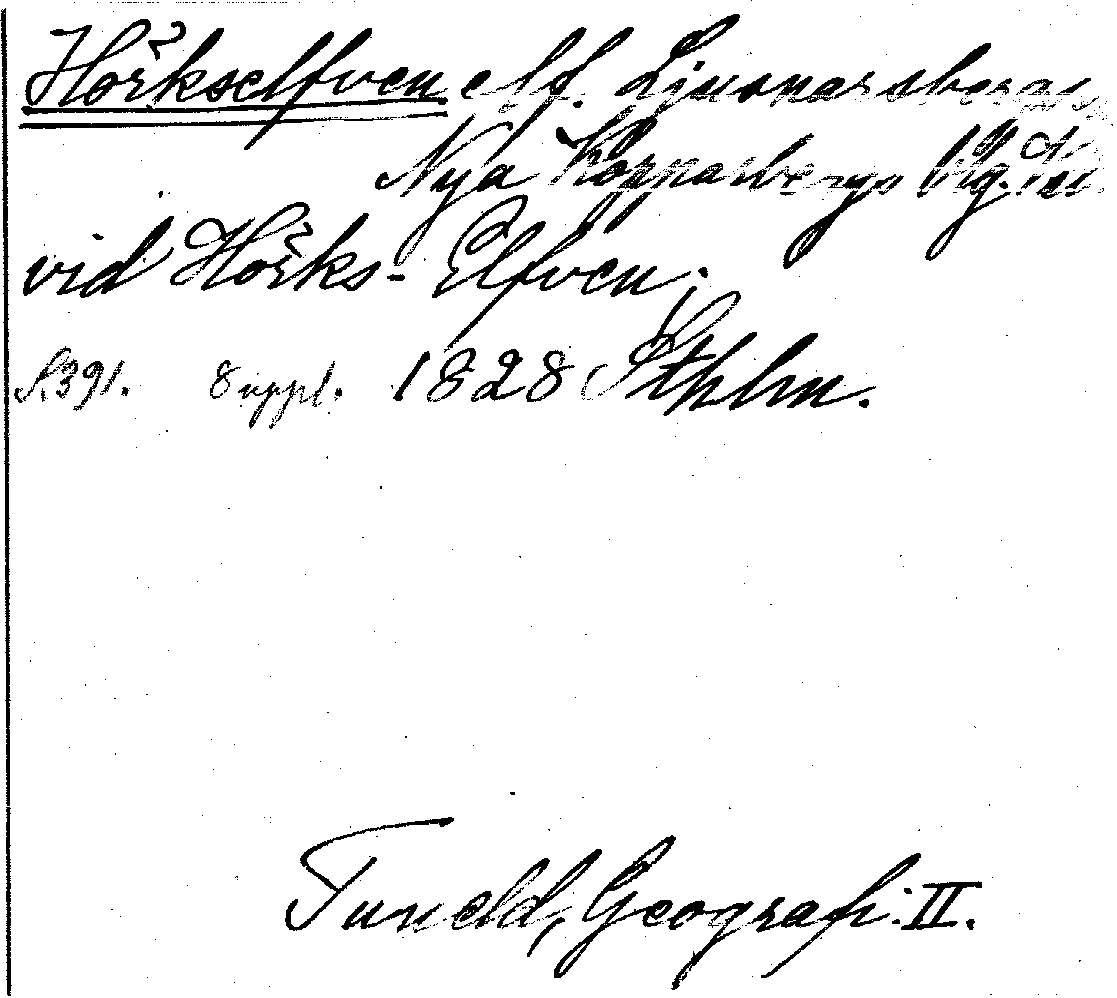 Hörkselfven elf. Ljusnarsbergs,
Nya Kopparbergs
vid Hörks-Elfven.
S. 391. 8 uppl. 1828 Sthlm.
Tuneld, Geografi. II.